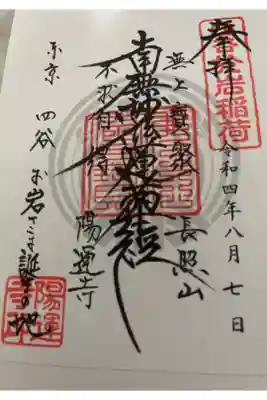 奉拝
於岩稲荷
令和四年八月七日
無上寶聚
長照山
南無妙法蓮華経
不求自得
陽運寺
東京 四谷 お岩さま誕生の地
陽運寺